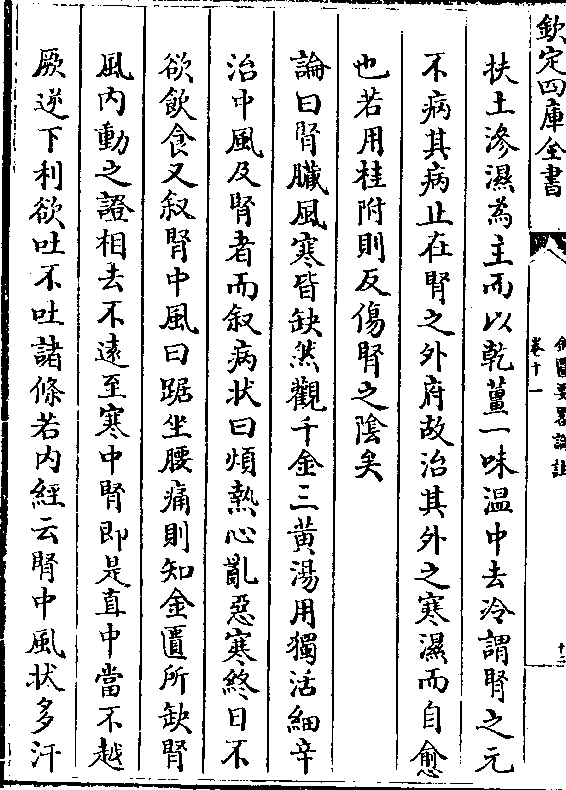 欽定四庫全書
金匱要畧論註
卷十一
十三
扶土滲濕為主而以乾薑一味温中去冷謂腎之元
不病其病止在腎之外府故治其外之寒濕而自愈
也若用桂附則反傷腎之陰矣
論曰腎臟風寒皆缺然觀千金三黄湯用獨活細辛
治中風及腎者而叙病状曰煩熱心亂惡寒終日不
欲飲食又叙腎中風曰踞坐腰痛則知金匱所缺腎
風内動之證相去不遠至寒中腎即是直中當不越
厥逆下利欲吐不吐諸條若内經云腎中風状多汗